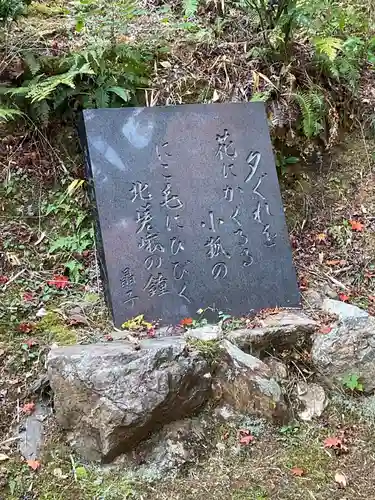 夕ぐれを
花にかくるる
小狐の
にこ毛にひびく
北嵯峨の鐘
晶子